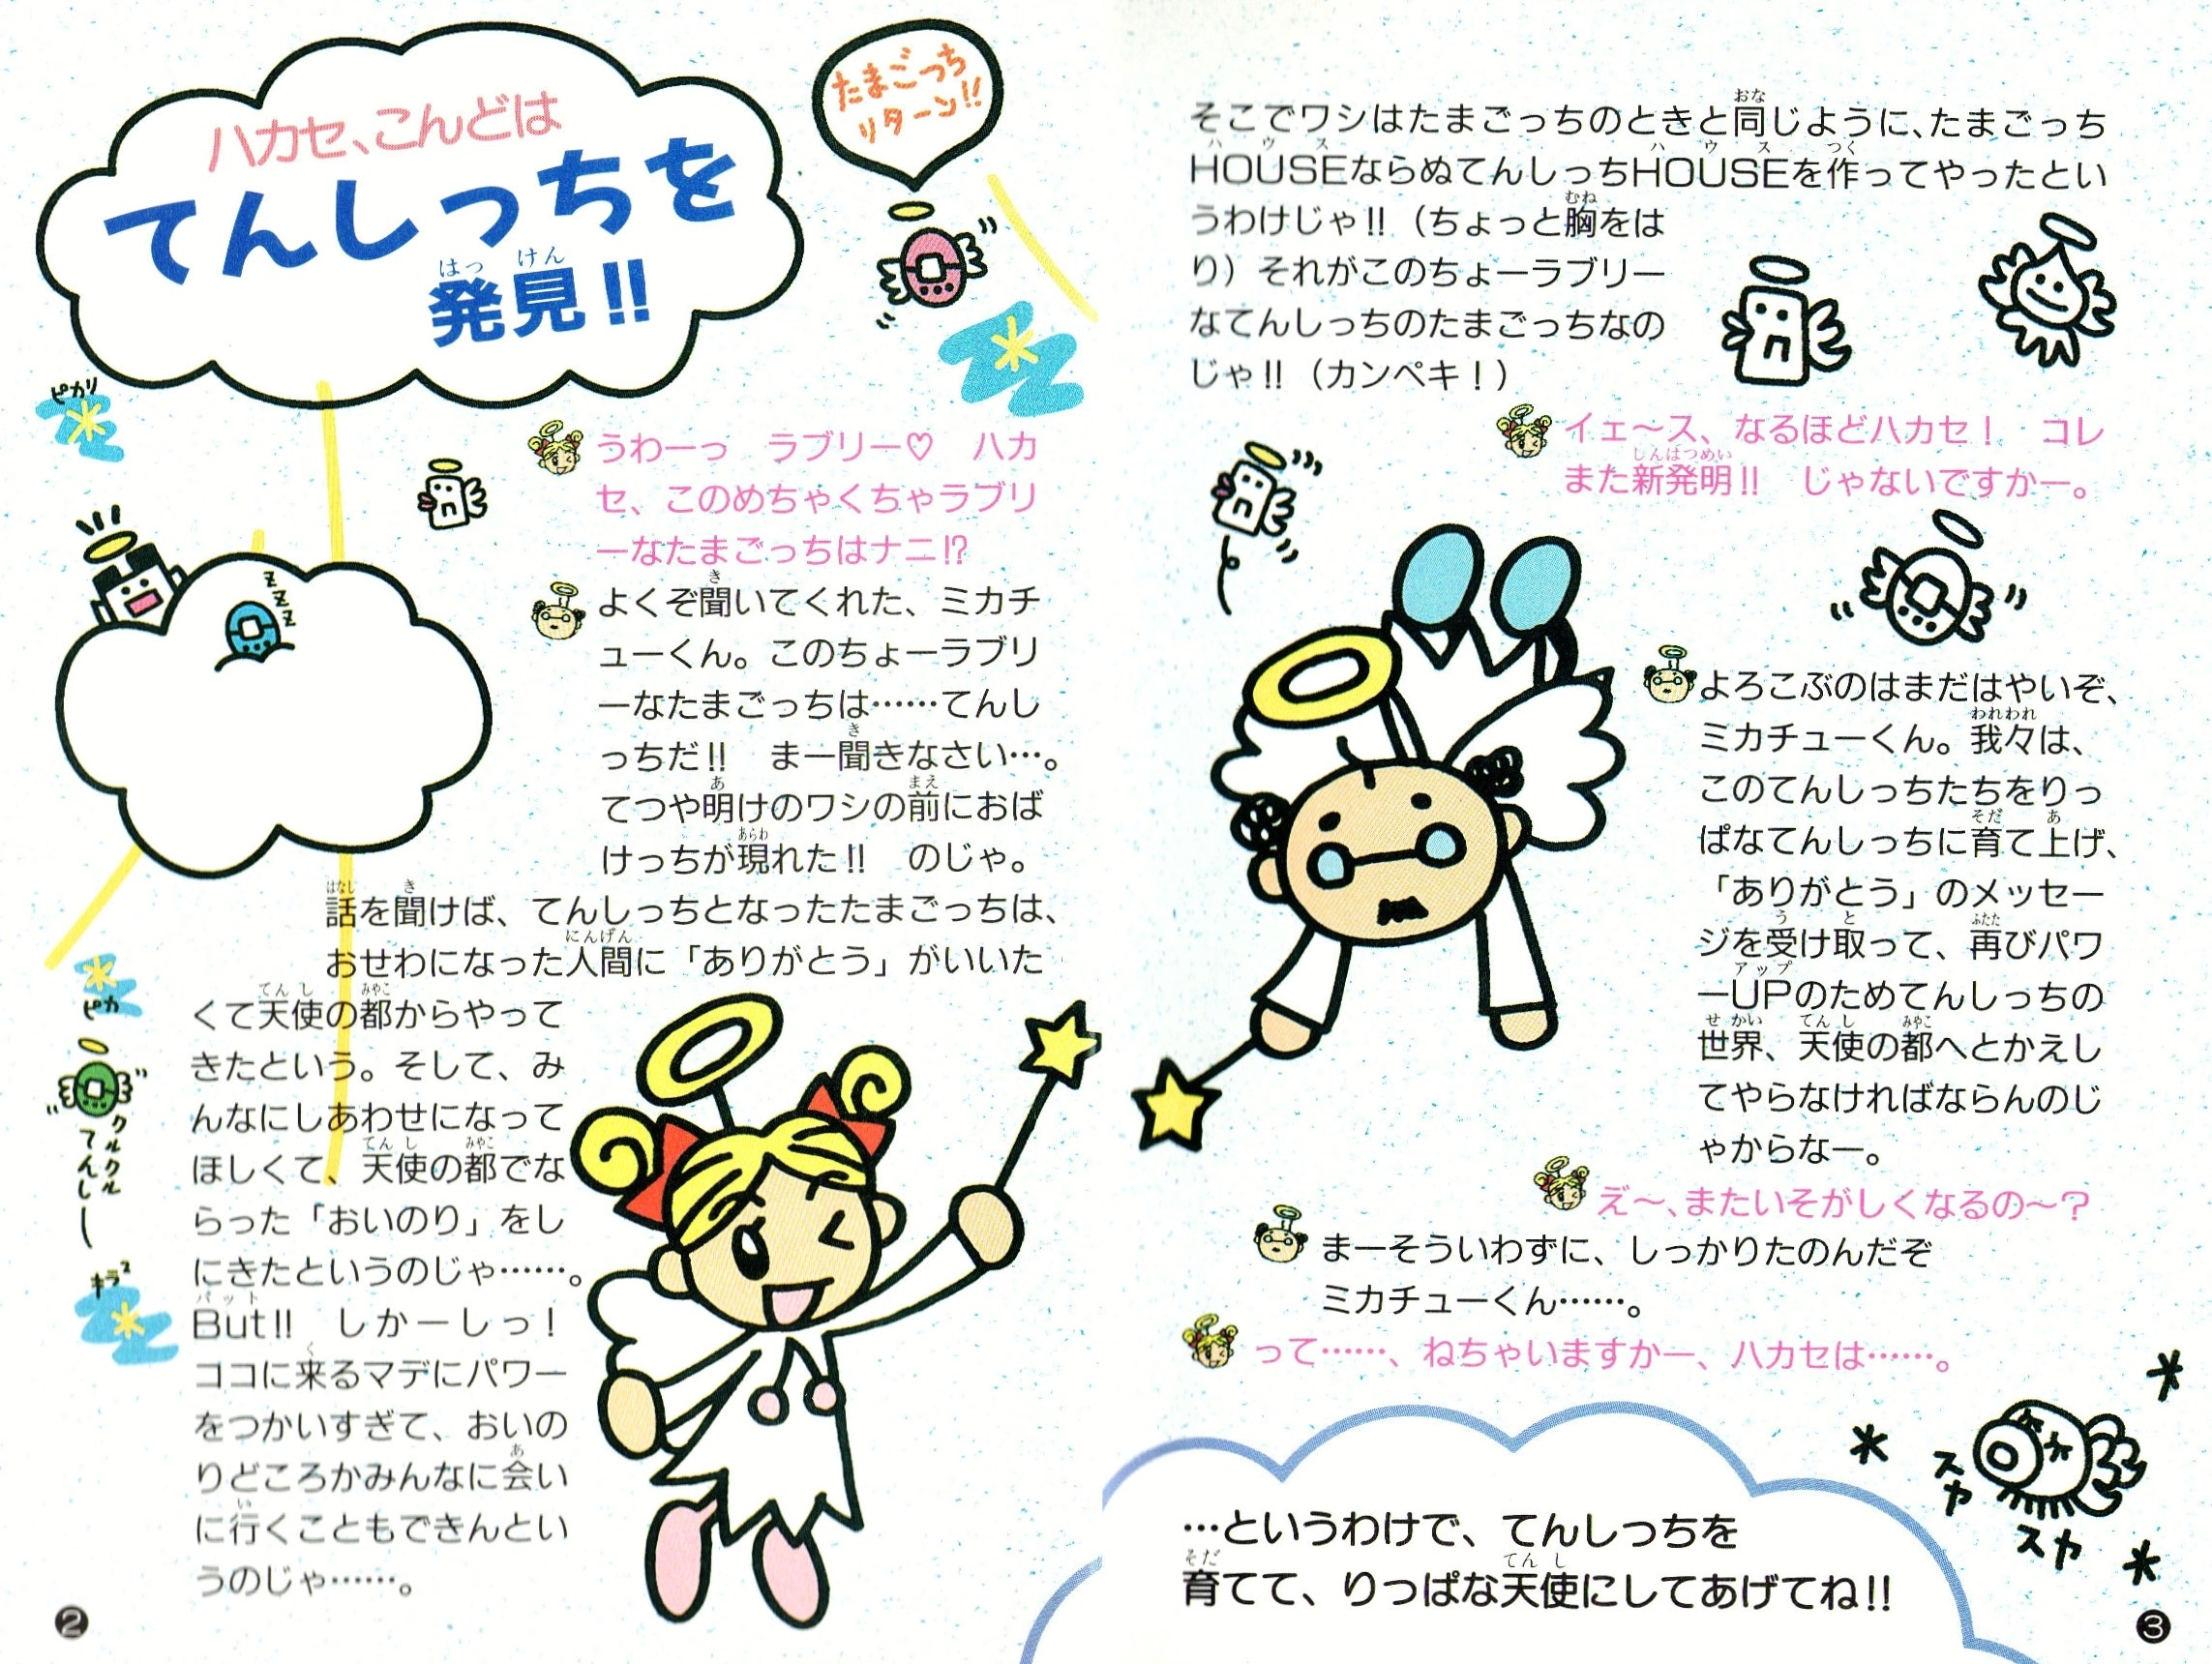 ハカセ、こんどは
てんしっちを
発見!!
たまごっち
リターン!!
ピカリ
zzzz
うわーっ　ラブリー♡　ハカ
セ、このめちゃくちゃラブリ
ーなたまごっちはナニ!?
よくぞ聞いてくれた、ミカチ
ューくん。このちょーラブリ
ーなたまごっちは……てんし
っちだ!!　まー聞きなさい…。
てつや明けのワシの前におば
けっちが現れた!!　のじゃ。
話を聞けば、てんしっちとなったたまごっちは、
おせわになった人間に「ありがとう」がいいた
くて天使の都からやって
きたという。そして、み
んなにしあわせになって
ほしくて、天使の都でな
らった「おいのり」をし
にきたというのじゃ……。
But!!　しかーしっ！
ココに来るマデにパワー
をつかいすぎて、おいの
りどころかみんなに会い
に行くこともできんとい
うのじゃ……。
ピカ
クルクル
てんしー
キラッ
2
そこでワシはたまごっちのときと同じように、たまごっち
HOUSEならぬてんしっちHOUSEを作ってやったとい
うわけじゃ!!（ちょっと胸をは
り）それがこのちょーラブリー
なてんしっちのたまごっちなの
じゃ!!（カンペキ！）
イェ〜ス、なるほどハカセ！　コレ
また新発明!!　じゃないですかー。
よろこぶのはまだはやいぞ、
ミカチューくん。我々は、
このてんしっちたちをりっ
ぱなてんしっちに育て上げ、
「ありがとう」のメッセー
ジを受け取って、再びパワ
ーUPのためてんしっちの
世界、天使の都へとかえし
てやらなければならんのじ
ゃからなー。
え〜、またいそがしくなるの〜？
まーそういわずに、しっかりたのんだぞ
ミカチューくん……。
って……、ねちゃいますかー、ハカセは……。
スヤ
スヤ
…というわけで、てんしっちを
育てて、りっぱな天使にしてあげてね!!
3